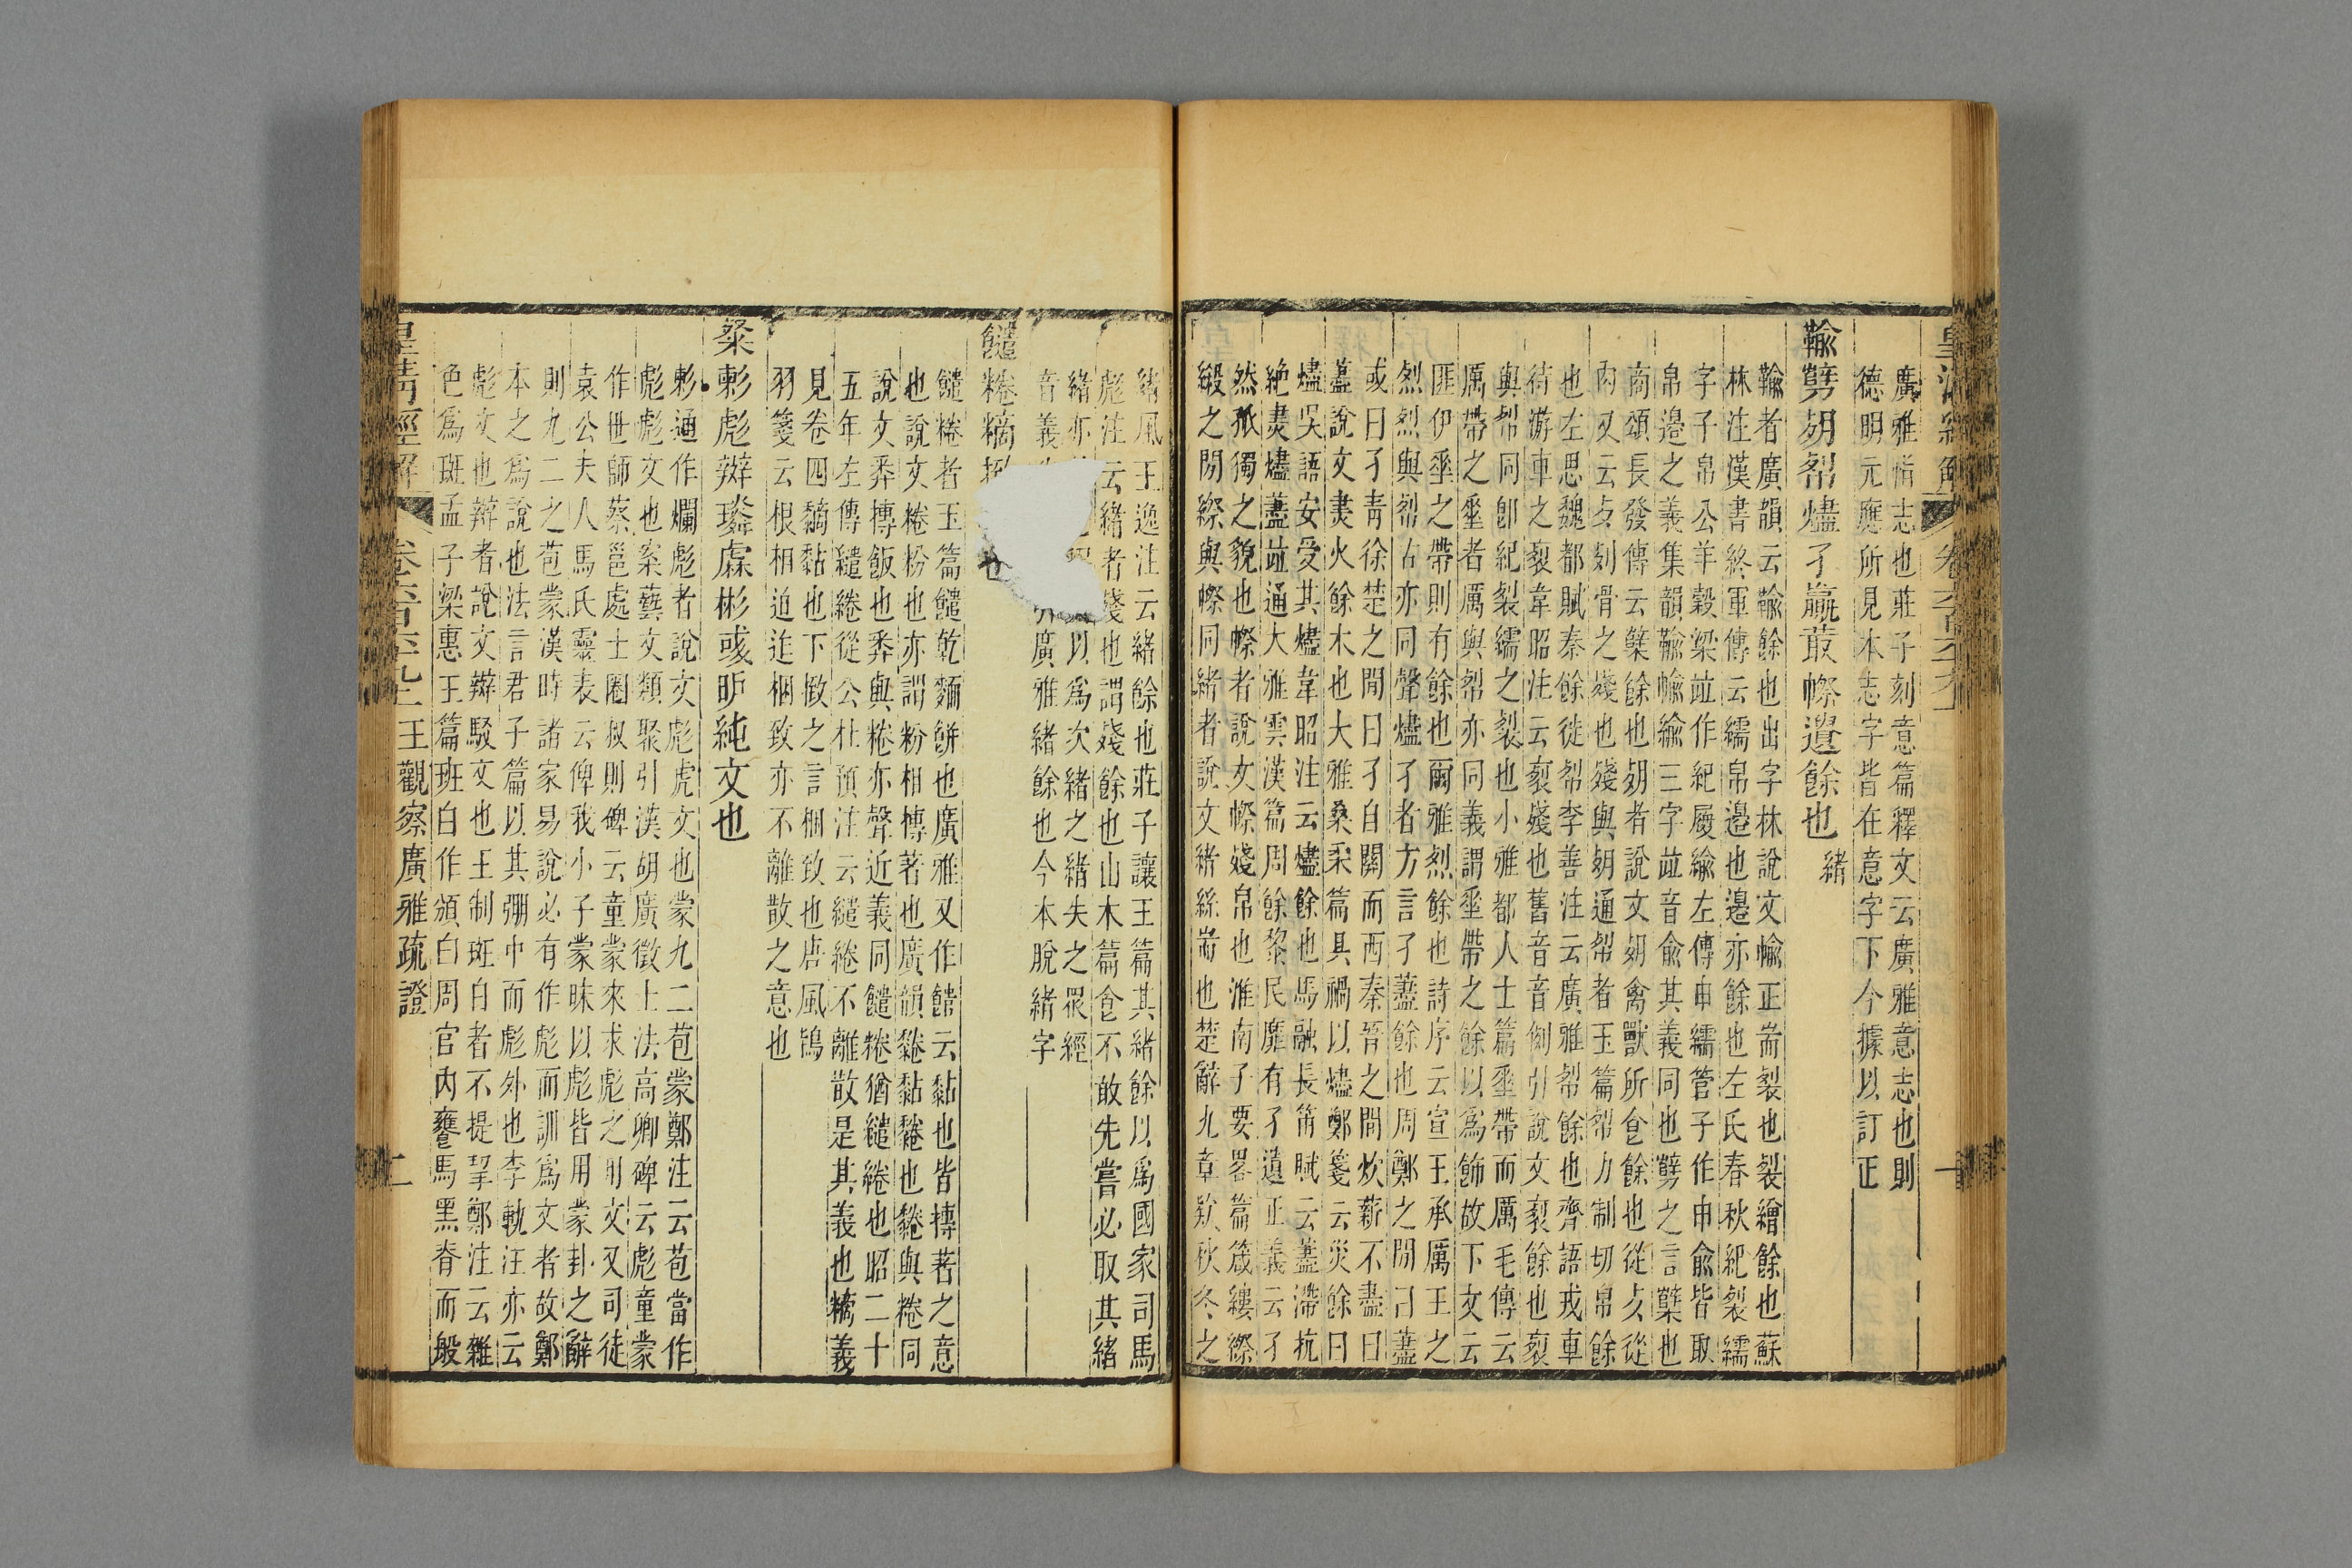 皇清經解 卷六百六十九
廣雅恉志也莊子刻意篇釋文云廣雅意志也則
德明元應所見本志字皆在意字下今據以訂正
䩱 㔎 帤 燼 孑 蕆 㡜 邊 餘也 緒
者廣韻云 餘也出字林說文 正耑裂也裂繒餘也蘇
林注漢書終軍傳云繻帛邊也邊亦餘也左氏春秋紀裂繻
字子帛公羊榖梁竝作紀履緰左傳申繻管子作申俞皆取
帛邊之義集韻 緰三字竝音俞其義同也 之言櫱也
商頌長發傳云櫱餘也 者說文 禽獸所食餘也從歺從
肉又云歺 骨之殘也殘與 通帤者玉篇帤力制切帛餘
也左思魏都賦秦餘徙帤李善注云廣雅帤餘也齊語戎車
待游車之裂韋昭注云裂殘也舊音音例引說文裂餘也裂
與帤同卽紀裂繻之裂也小雅都人士篇垂帶而厲毛傳云
厲帶之垂者厲與帤亦同義謂垂帶之餘以爲飾故下文云
匪伊垂之帶則有餘也爾雅烈餘也詩序云宣王承厲王之
烈烈與帤古亦同聲燼孑者方言孑藎餘也周鄭之閒曰藎
或曰孑靑徐楚之閒曰孑自關而西秦晉之閒炊薪不盡曰
藎說文㶳火餘木也大雅桑柔篇具禍以燼鄭箋云災餘曰
燼吳語安受其燼韋昭注云燼餘也馬融長笛賦云藎滯抗
絶㶳燼藎竝通大雅雲漢篇周餘黎民靡有孑遺正義云孑
然孤獨之貌也㡜者說文㡜殘帛也淮南子要畧篇箴縷縩
緞之閒縩與㡜同緒者說文緒絲耑也楚辭九章欸秋冬之
緒風王逸注云緒餘也莊子讓王篇其緒餘以爲國家司馬
彪注云緒者殘也謂殘餘也山木篇食不敢先嘗必取其緒
緒亦 以爲次緒之緒失之衆經
音義 廣雅緒餘也今本脫緒字
䭔 䊎 䊞 也
䭔䊎者玉篇䭔乾麵餅也廣雅又作䭔云黏也皆摶著之意
也說文䊎粉也亦謂粉相摶著也廣韻 黏 也 與䊎同
說文 摶飯也 與䊎亦聲近義同䭔䊎猶繾綣也昭二十
五年左傳繾綣從公杜預注云繾綣不離散是其義也 義
見卷四 黏也下㨖之言梱致也唐風鴇
羽箋云根相迫迮梱致亦不離散之意也
粲 彪辬璘虨彬彧 純文也
通作斕彪者說文彪虎文也蒙九二苞蒙鄭注云苞當作
彪彪文也案藝文類聚引漢胡廣徵士法高卿碑云彪童蒙
作世師蔡邕處士圈叔則碑云童蒙來求彪之用文又司徒
袁公夫人馬氏靈表云俾我小子蒙昧以彪皆用蒙卦之辭
則九二之苞蒙漢時諸家易說必有作彪而訓爲文者故鄭
本之爲說也法言君子篇以其弸中而彪外也李軌注亦云
彪文也辬者說文辬駁文也王制斑白者不提挈鄭注云雜
色爲斑孟子梁惠王篇班白作頒白周官內饔馬黑脊而般
皇淸經解 卷六百六十九 王觀察廣雅疏證 二